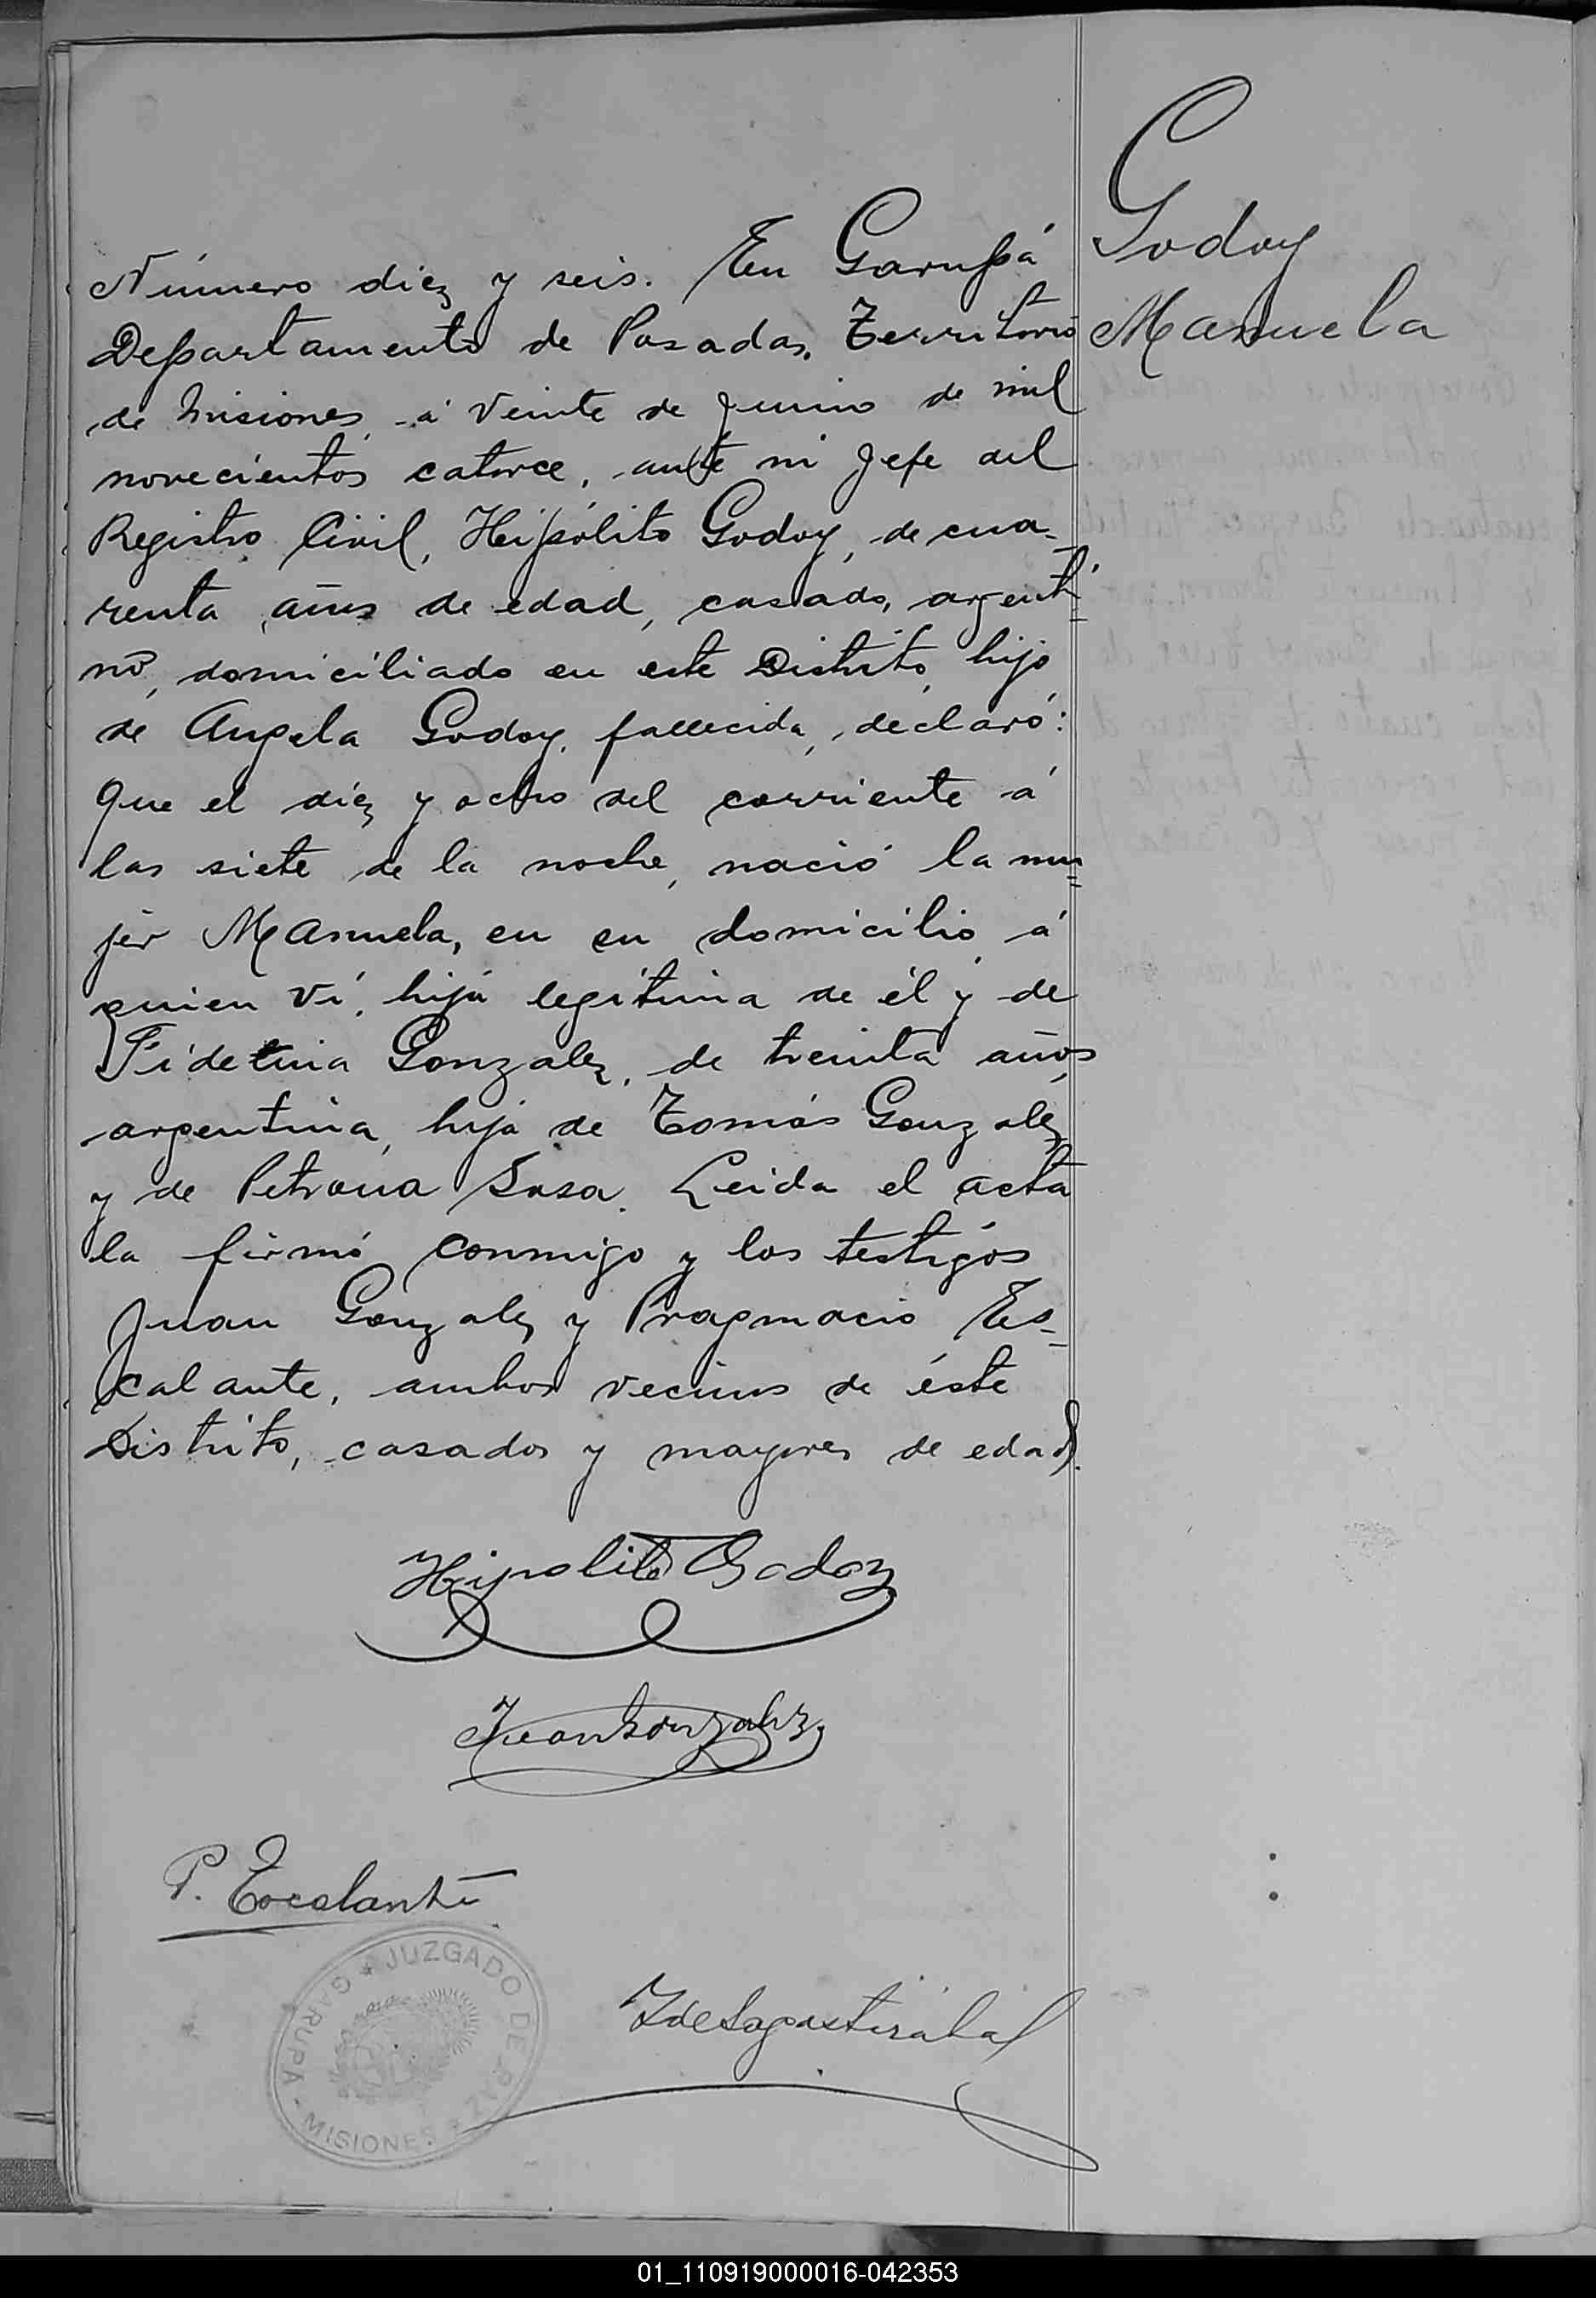 Godoy
Manuela
Número diez y seis. En Garupá
Departamento de Posadas, Territorio
de Misiones, á veinte de Junio de mil
novecientos catorce, ante mi Jefe del
Registro Civil, Hipólito Godoy, de cua-
renta años de edad, casado, argenti
no, domiciliado en este Distrito, hijo
de Angela Godoy, fallecida, declaró:
Que el diez y ocho del corriente á
las siete de la noche, nació la mu=
jer Manuela, en su domicilio, á
quien ví, hija legítima de él y de
Fidelina Gonzalez, de treinta años,
argentina, hija de Tomás Gonzalez
y de Petrona Sosa. Leida el acta
la firmó conmigo y los testigos
Juan Gonzalez y Pragmacio Es=
calante, ambos vecinos de éste
Distrito, casados y mayores de edad.
Hipolito Godoy
Juan Gonzalez
P. Escalante
JUZGADO DE PAZ
GARUPA - MISIONES
01_110919000016-042353